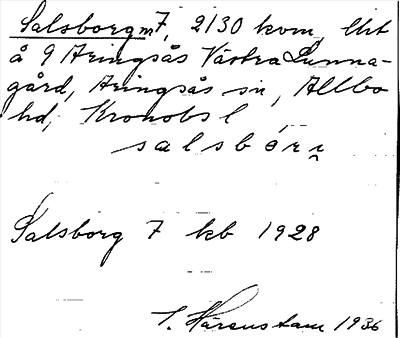 Salsborg 7, 2130 kvm, lht
å 9 Aringsås Västra Sunna-
gård, Aringsås sn, Allbo
hd, Kronobs l
Salsborg 7 kb 1928
1936